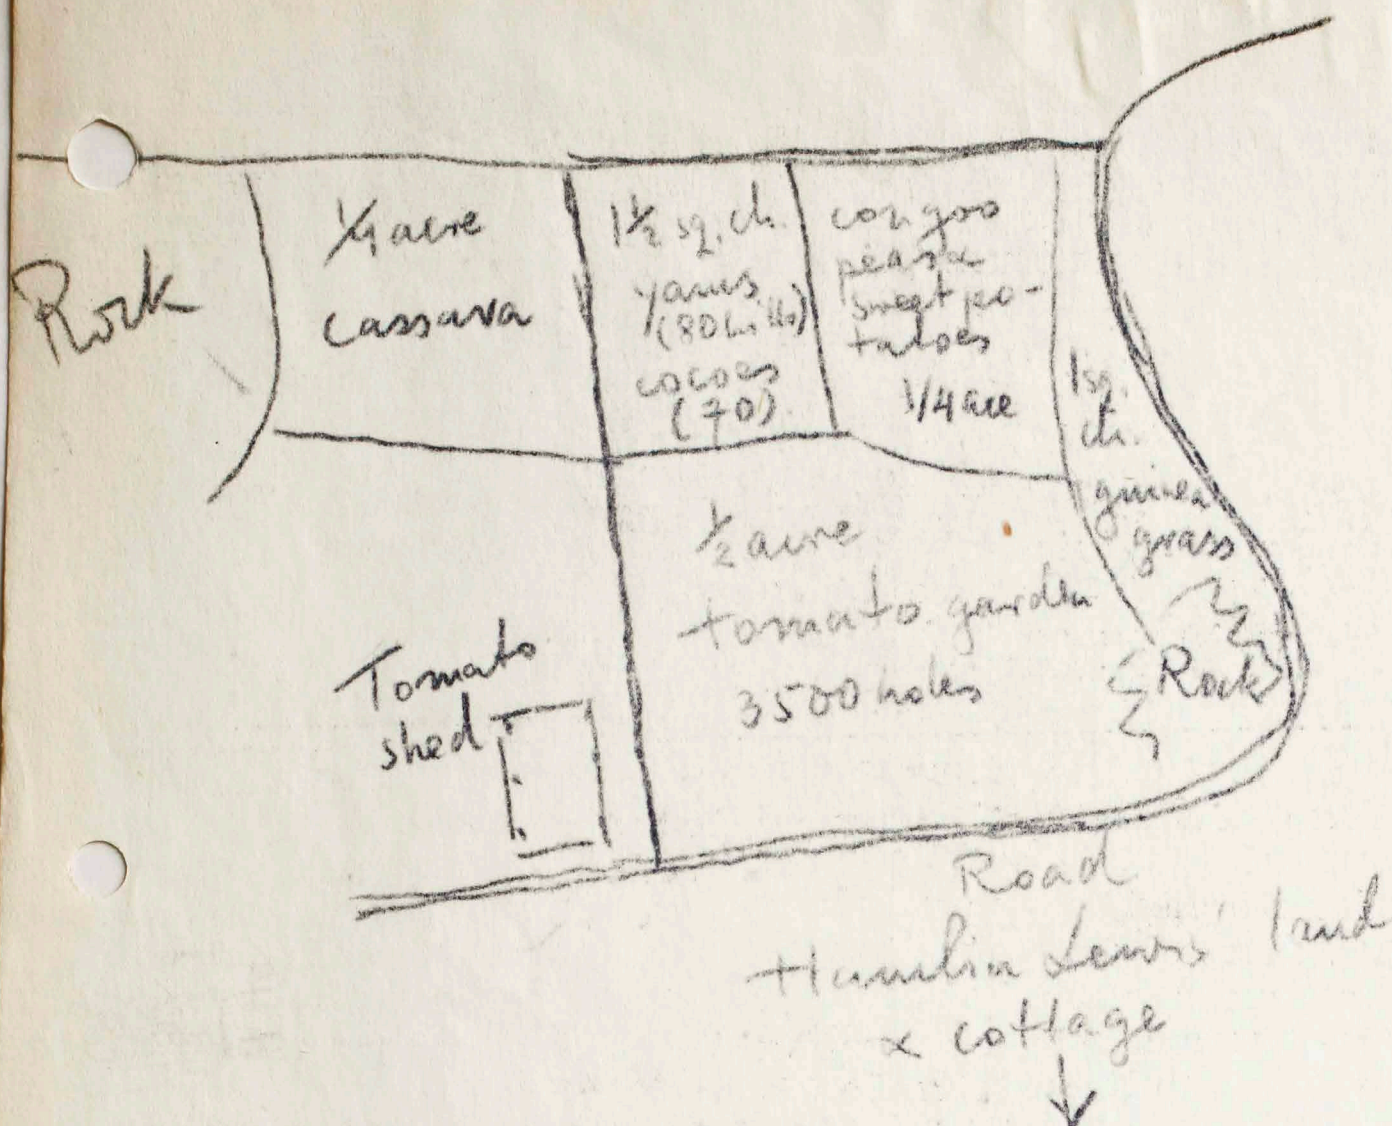 Rock
1/4 acre
cassava
1 1/2 sq. ch.
yams
(80 hills)
cocoes
(70)
congoo
peas &
sweet po-
tatoes
1/4 acre
1 sq.
ch.
guinea
grass
Rock
1/2 acre
tomato garden
3500 holes
Tomato
shed
Road
Lewis' land
& cottage